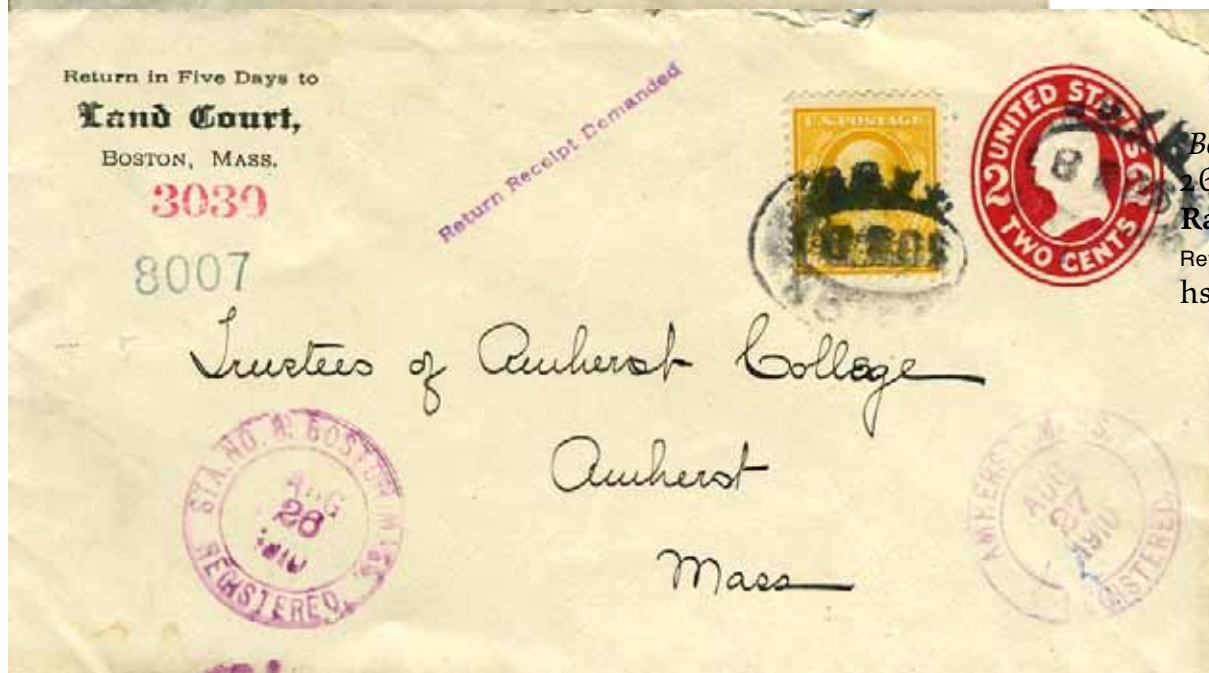 Return in Five Days to
Land Court,
BOSTON, MASS.
3030
8007
Return Receipt Demanded
U.S. POSTAGE
UNITED STATES
2 2
TWO CENTS
Trustees of Amherst College
Amherst
Mass
STA. NO. BOSTON MASS.
AUG
26
1910
REGISTERED.
AMHERST MASS.
AUG
27
1910
REGISTERED.